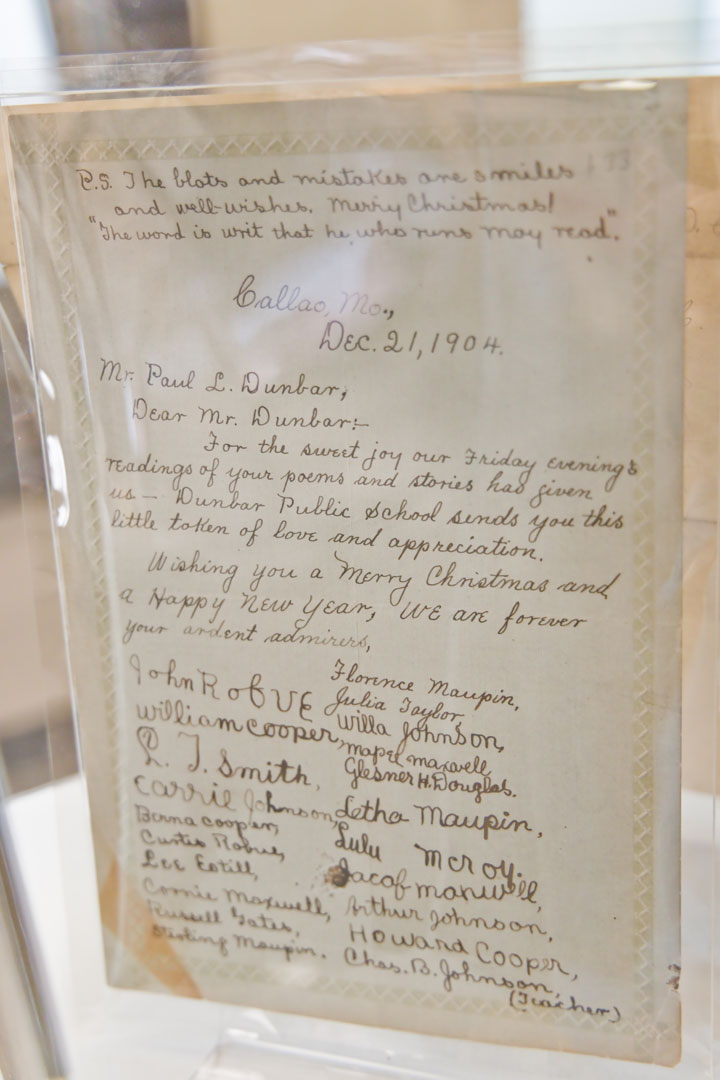 P.S. The blots and mistakes are smiles
and well-wishes. Merry Christmas!
"The word is writ that he who runs may read."
Callao, Mo.,
Dec. 21, 1904.
Mr. Paul L. Dunbar,
Dear Mr. Dunbar:-
For the sweet joy our Friday evening's
readings of your poems and stories has given
us — Dunbar Public School sends you this
little token of love and appreciation.
Wishing you a Merry Christmas and
a Happy New Year, We are forever
your ardent admirers,
John RobVE
Florence Maupin,
Julia Taylor,
William Cooper,
Willa Johnson,
Mapel Maxwell,
L. T. Smith,
Glesner H. Douglas.
Carrie Johnson,
Letha Maupin,
Berna Cooper,
Lulu McRoy.
Curtis
Lee Estill,
Jacof Maxwell,
Connie Maxwell,
Arthur Johnson,
Russell Gates,
Howard Cooper,
Sterling Maupin.
Chas. B. Johnson,
(Teacher)